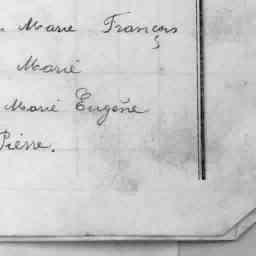 Marie François
Marié
Marié Eugène
Pierre.